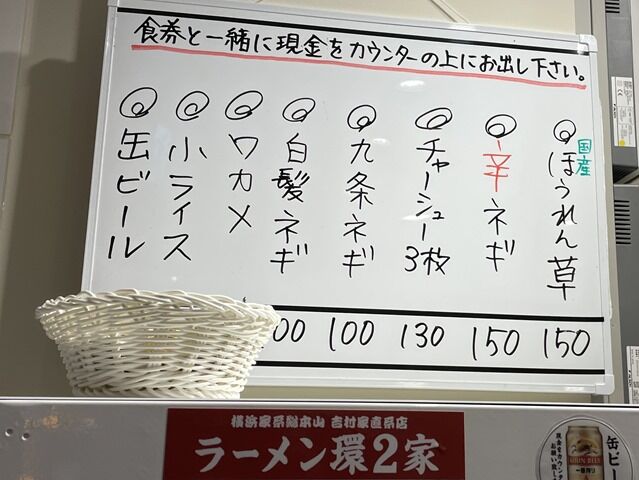 食券と一緒に現金をカウンターの上にお出し下さい。
国産ほうれん草
辛ネギ
チャーシュー3枚
九条ネギ
白髪ネギ
ワカメ
小ライス
缶ビール
00 100 130 150 150
横浜家系総本山 吉村家直系店
ラーメン環2家
缶ビー
現金をカウンター
KIRIN BEER
一番搾り